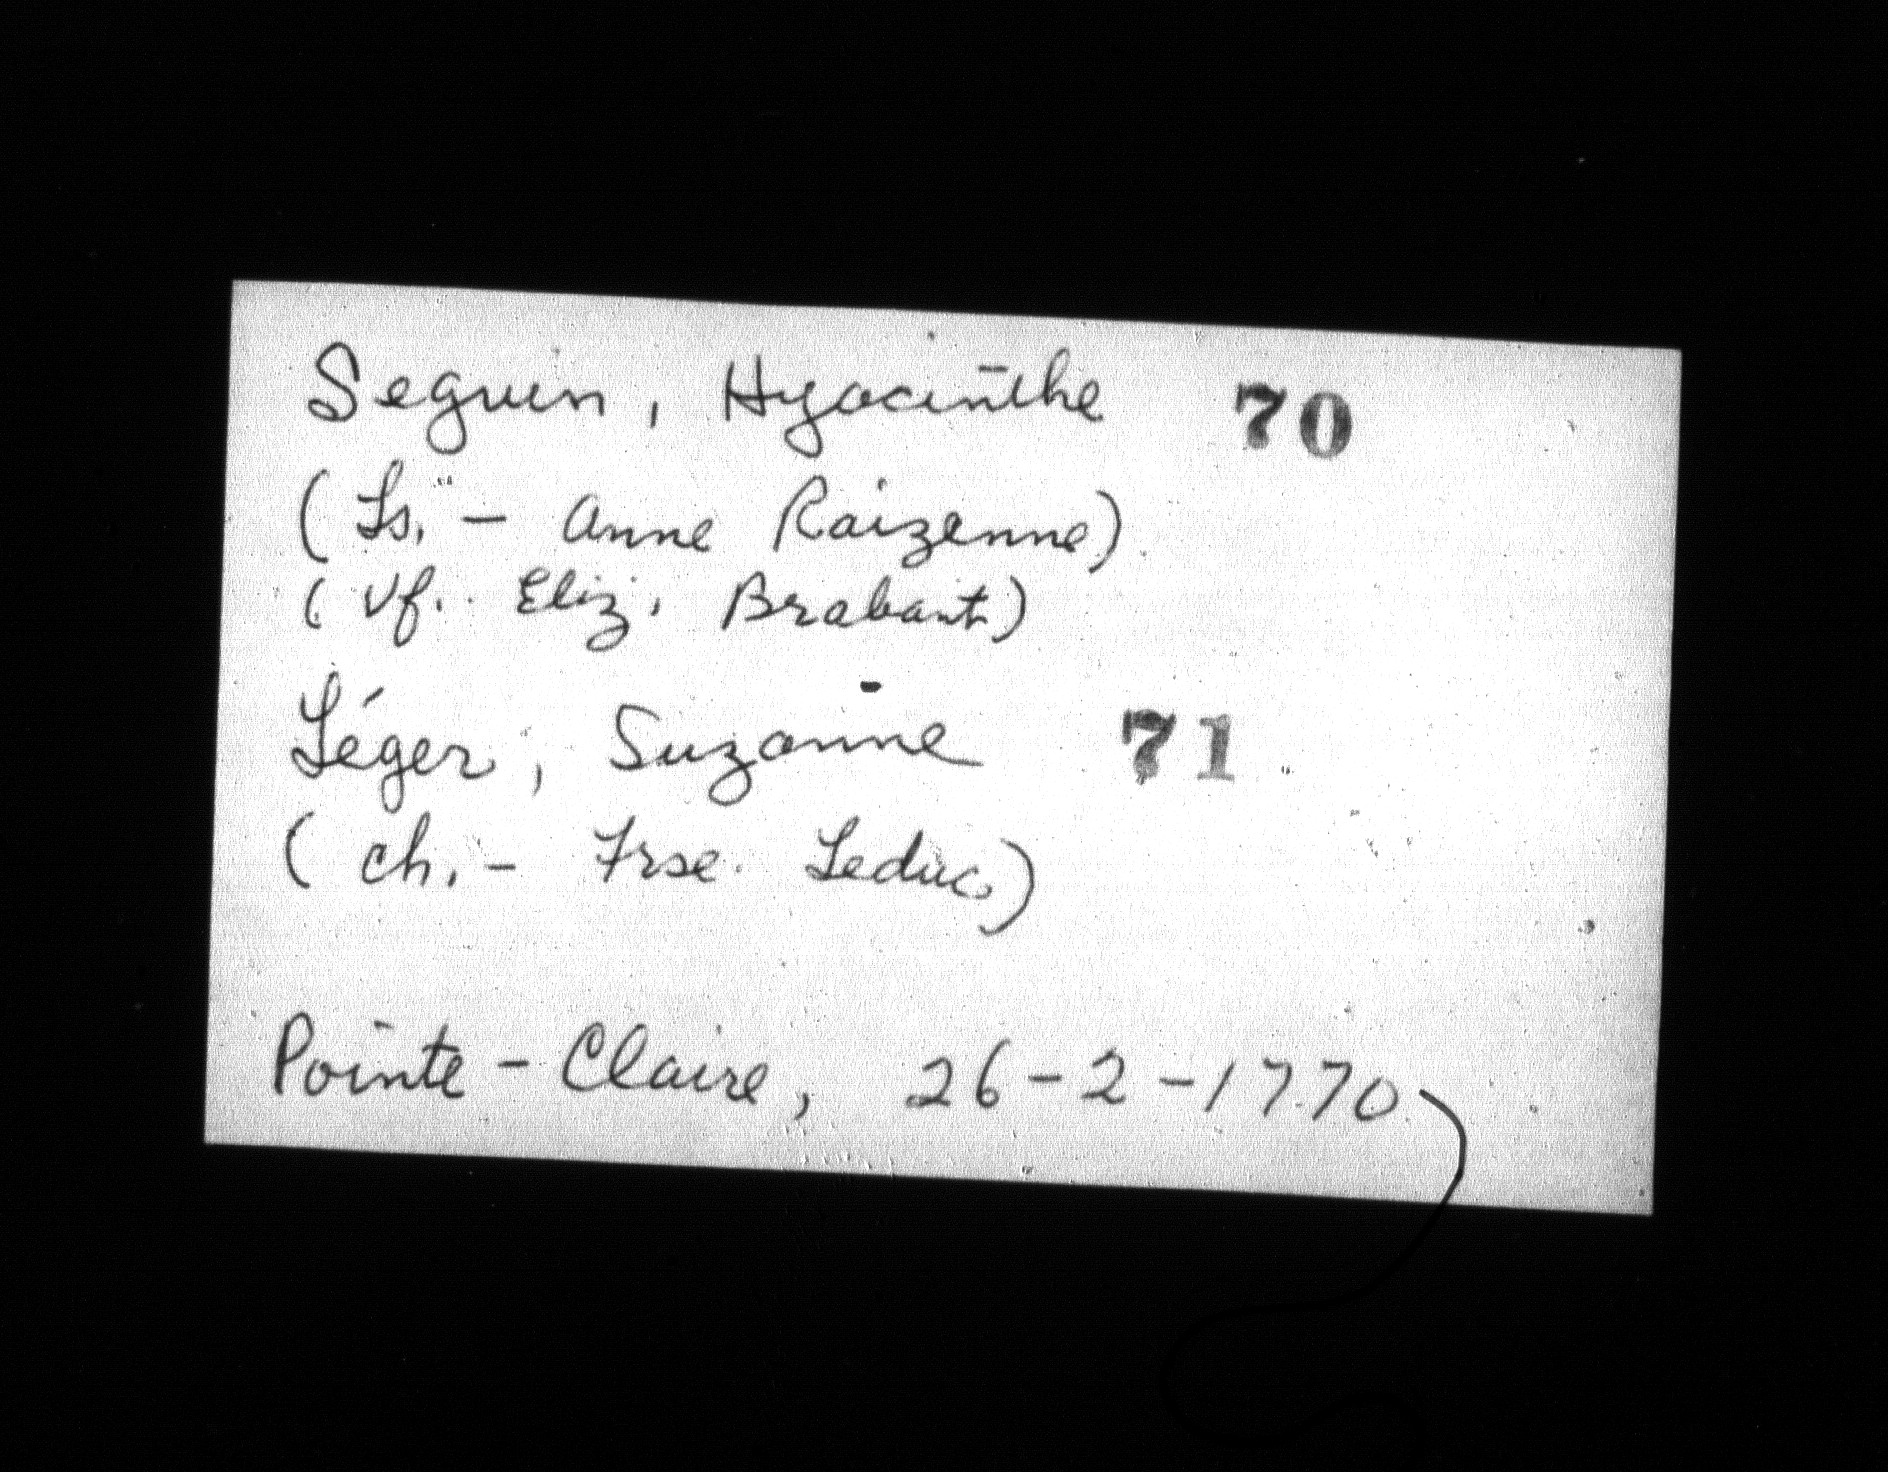 Seguin, Hyacinthe 70
(Ls. - Anne Raizenne)
(Vf. Eliz. Brabant)
Léger, Suzanne 71
(ch. - Frse. Leduc)
Pointe-Claire, 26-2-1770